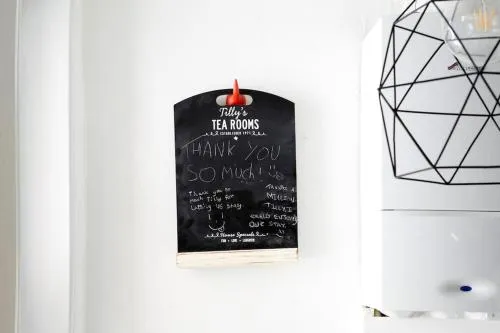 Tilly's
TEA ROOMS
ESTABLISHED 1971
THANK YOU
SO MUCH!
Thank you so
much Tilly for
letting us stay.
THANKS A
MILLION
TILLY I
REALLY ENJOYED
OUR STAY.
House Specials
TEA • LOVE • LAUGHTER